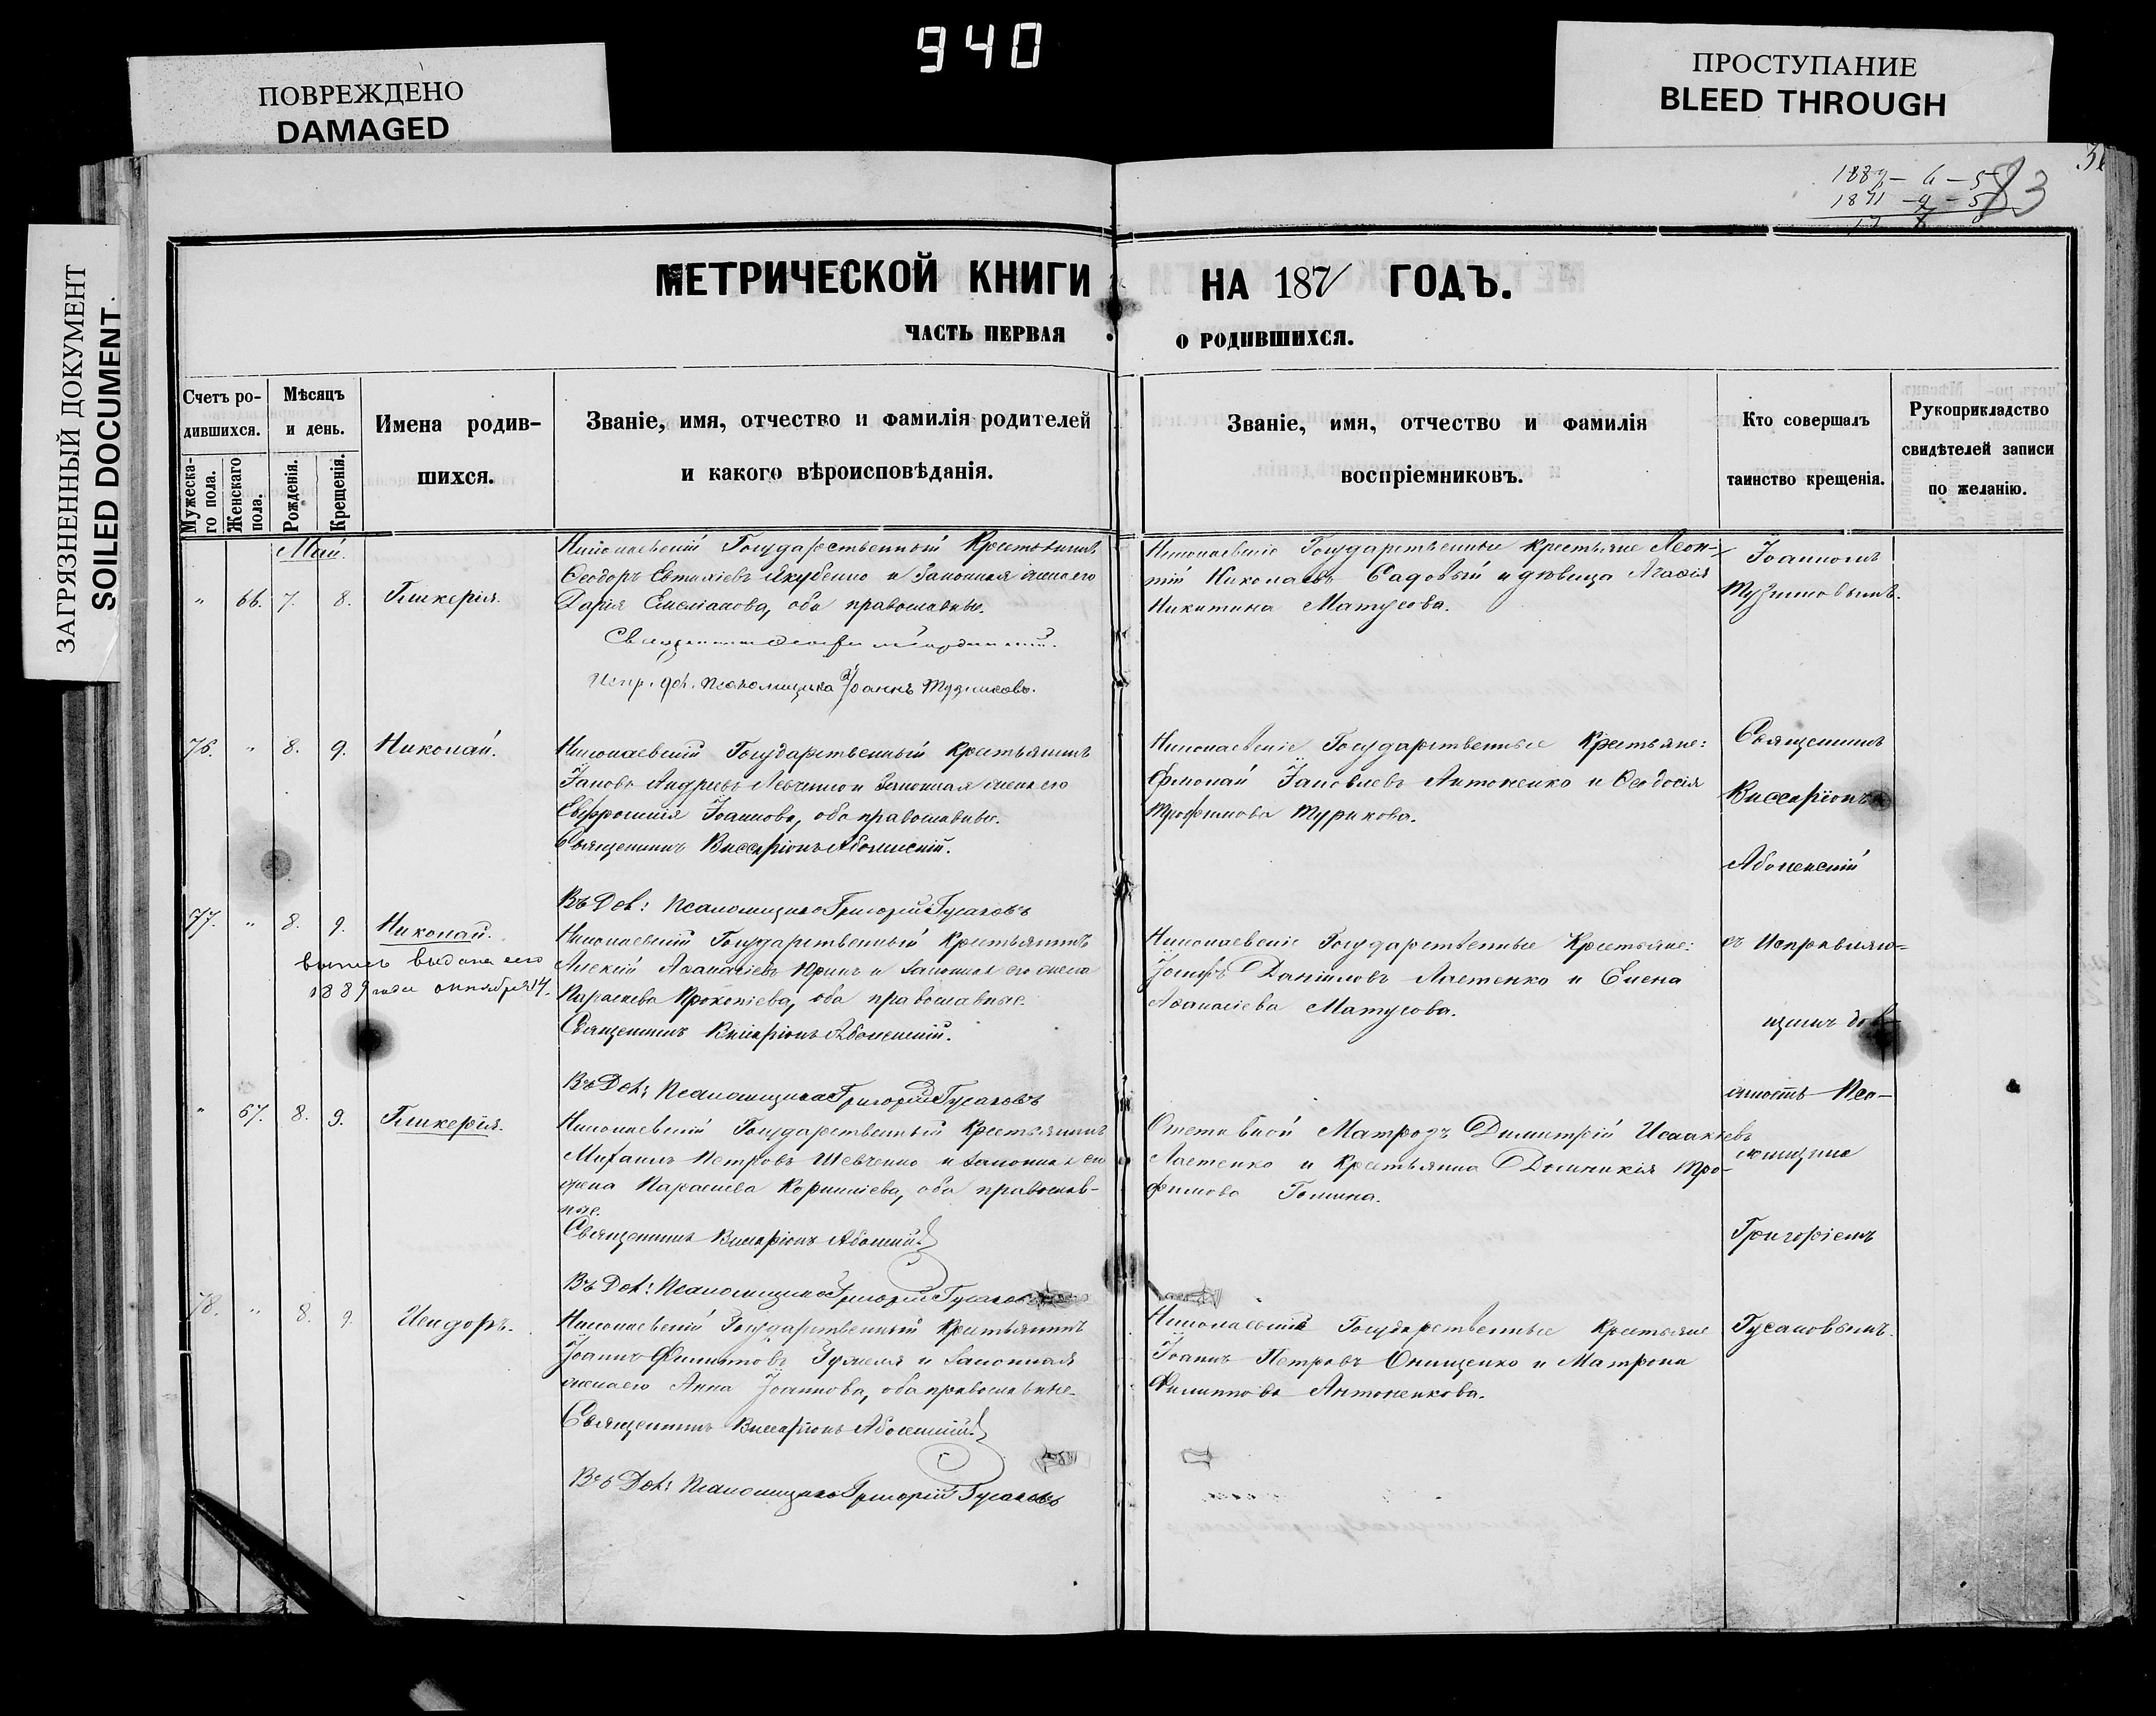 940
ПОВРЕЖДЕНО
DAMAGED
ПРОСТУПАНИЕ
BLEED THROUGH
ЗАГРЯЗНЕННЫЙ ДОКУМЕНТ
SOILED DOCUMENT
83
МЕТРИЧЕСКОЙ КНИГИ НА 1871 ГОДЪ.
ЧАСТЬ ПЕРВАЯ О РОДИВШИХСЯ.
Счетъ ро-
дившихся.
Мужеска-
го пола.
Женскаго
пола.
Мѣсяцъ
и день.
Рожденія.
Крещенія.
Имена родив-
шихся.
Званіе, имя, отчество и фамилія родителей
и какого вѣроисповѣданія.
Званіе, имя, отчество и фамилія
воспріемниковъ.
Кто совершалъ
таинство крещенія.
Рукоприкладство
свидѣтелей записи
по желанію.
Май.
" 66. 7. 8. Гликерія.
Николаевскій Государственный Крестьянинъ
Ѳеодоръ Евтихіевъ Якубенко и Законная жена его
Дарія Емеліанова, оба православные.
Испр. дол. псаломщика Іоаннъ
Николаевскіе Государственные Крестьяне Леон-
тій Николаевъ Садовый и дѣвица Агаѳія
Никитина Матусова.
Іоанномъ
76. " 8. 9. Николай.
Николаевскій Государственный Крестьянинъ
Іаковъ Андреевъ Левченко и Законная жена его
Евфросинія Іоаннова, оба православные.
Священникъ Виссаріонъ
Въ Дол: Псаломщика Григорій Гусаковъ
Николаевскіе Государственные Крестьяне:
Филимонъ Іаковлевъ Антоненко и Ѳеодосія
Трофимова Турикова.
Священникъ
Виссаріонъ
77. " 8. 9. Николай.
выпись выдана его
1889 года октября 14.
Николаевскій Государственный Крестьянинъ
Алексій Аѳанасіевъ Юринъ и Законная его жена
Параскева Прокопіева, оба православные.
Священникъ Виссаріонъ
Въ Дол: Псаломщика Григорій Гусаковъ
Николаевскіе Государственные Крестьяне:
Іосифъ Даніиловъ Ластенко и Елена
Аѳанасіева Матусова.
съ Исправляю-
щимъ дол-
жность Пса-
" 67. 8. 9. Гликерія.
Николаевскій Государственный Крестьянинъ
Михаилъ Петровъ Шевченко и Законная его
жена Параскева Корниліева, оба православ-
ные.
Священникъ Виссаріонъ
Въ Дол: Псаломщика Григорій Гусаковъ
Отставной Матрозъ Димитрій Исаакіевъ
Ластенко и Крестьянка Домникія Тро-
фимова Гомина.
ломщика
Григоріемъ
78. " 8. 9. Исидоръ.
Николаевскій Государственный Крестьянинъ
Іоаннъ Филипповъ и Законная
жена его Анна Іоаннова, оба православные.
Священникъ Виссаріонъ
Въ Дол: Псаломщика Григорій Гусаковъ
Николаевскіе Государственные Крестьяне
Іоаннъ Петровъ Онищенко и Матрона
Филиппова Антоненкова.
Гусаковымъ.